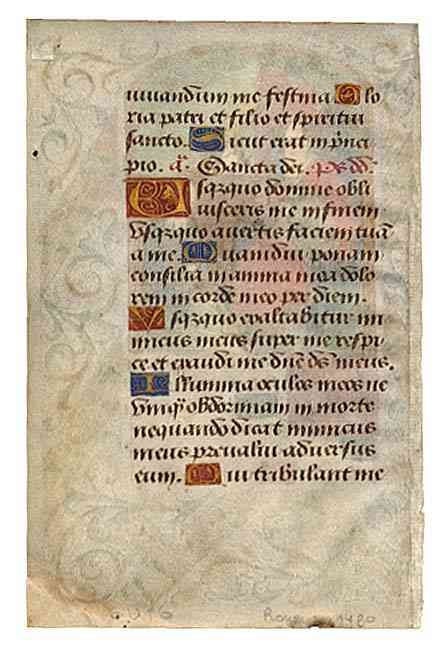 iuuandum me festina. Glo
ria patri et filio et spiritui
sancto. Sicut erat in p̄nci
pio. a͞. Sancta dei. Ps dd̄.
Usqzquo domine obli
uisceris me in finem
Vsqzquo auertis faciem tuā
a me. Quandiu ponam
consilia in anima mea dolo
rem in corde meo per diem.
Vsqzquo exaltabitur ini
micus meus super me respi
ce et exaudi me dn̄e ds̄ meus.
Illumina oculos meos ne
vmq̄ obdormiam in morte
nequando dicat inimicus
meus preualui aduersus
eum. Qui tribulant me
Rouen 1480